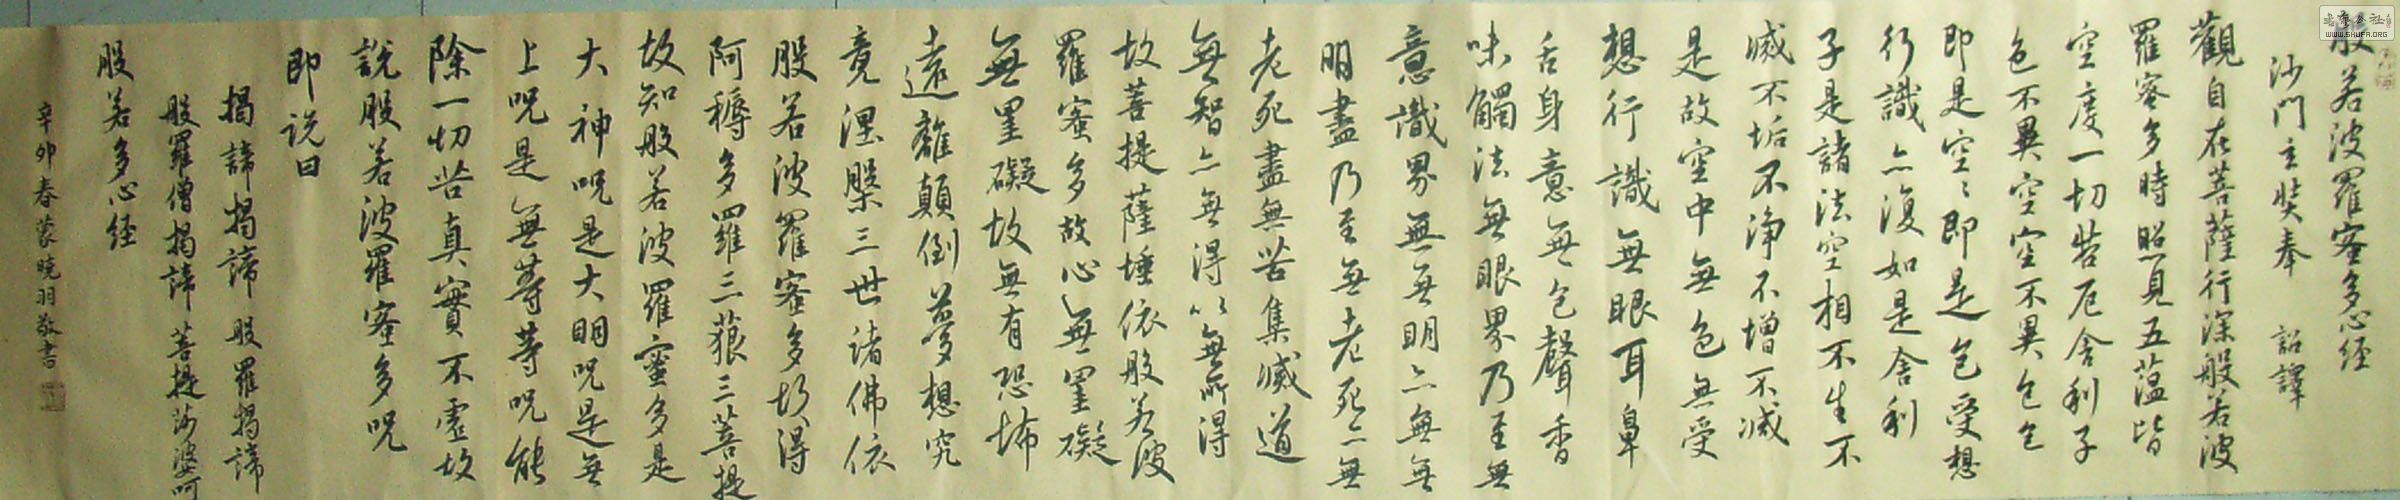 般若波羅蜜多心経
沙門玄奘奉 詔譯
觀自在菩薩行深般若波
羅蜜多時照見五蕰皆
空度一切苦厄舍利子
色不異空空不異色色
即是空空即是色受想
行識亦復如是舍利
子是諸法空相不生不
滅不垢不淨不增不减
是故空中無色無受
想行識無眼耳鼻
舌身意無色聲香
味觸法無眼界乃至無
意識界無無明亦無無
明盡乃至無老死亦無
老死盡無苦集滅道
無智亦無得以無所得
故菩提薩埵依般若波
羅蜜多故心無罣礙
無罣礙故無有恐怖
遠離顛倒夢想究
竟涅槃三世諸佛依
般若波羅蜜多故得
阿耨多羅三藐三菩提
故知般若波羅蜜多是
大神呪是大明呪是無
上呪是無等等呪能
除一切苦真實不虛故
說般若波羅蜜多呪
即说曰
揭諦揭諦 般羅揭諦
般羅僧揭諦菩提莎婆呵
般若多心経
辛卯春蒙曉羽敬書
書法公社
WWW.SHUFA.ORG